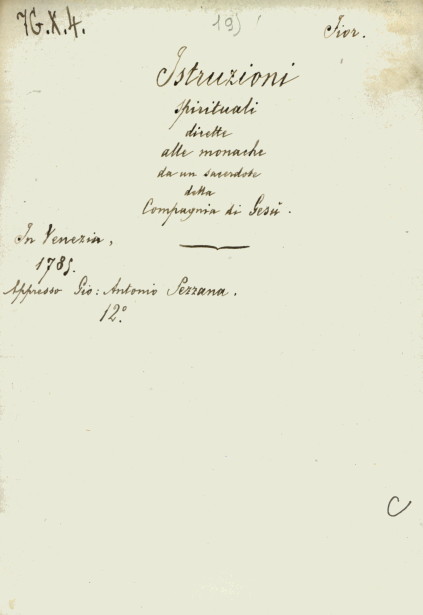 7G.X.4.
19)
Fior.
Istruzioni
spirituali
dirette
alle monache
da un sacerdote
detta
Compagnia di Gesù.
In Venezia,
1785.
Appresso Gio: Antonio Pezzana.
12°
C